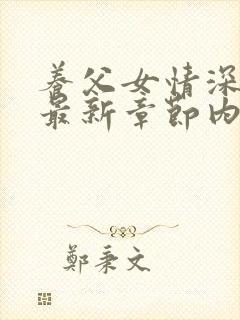 養父女情深
最新章節內
鄭秉文